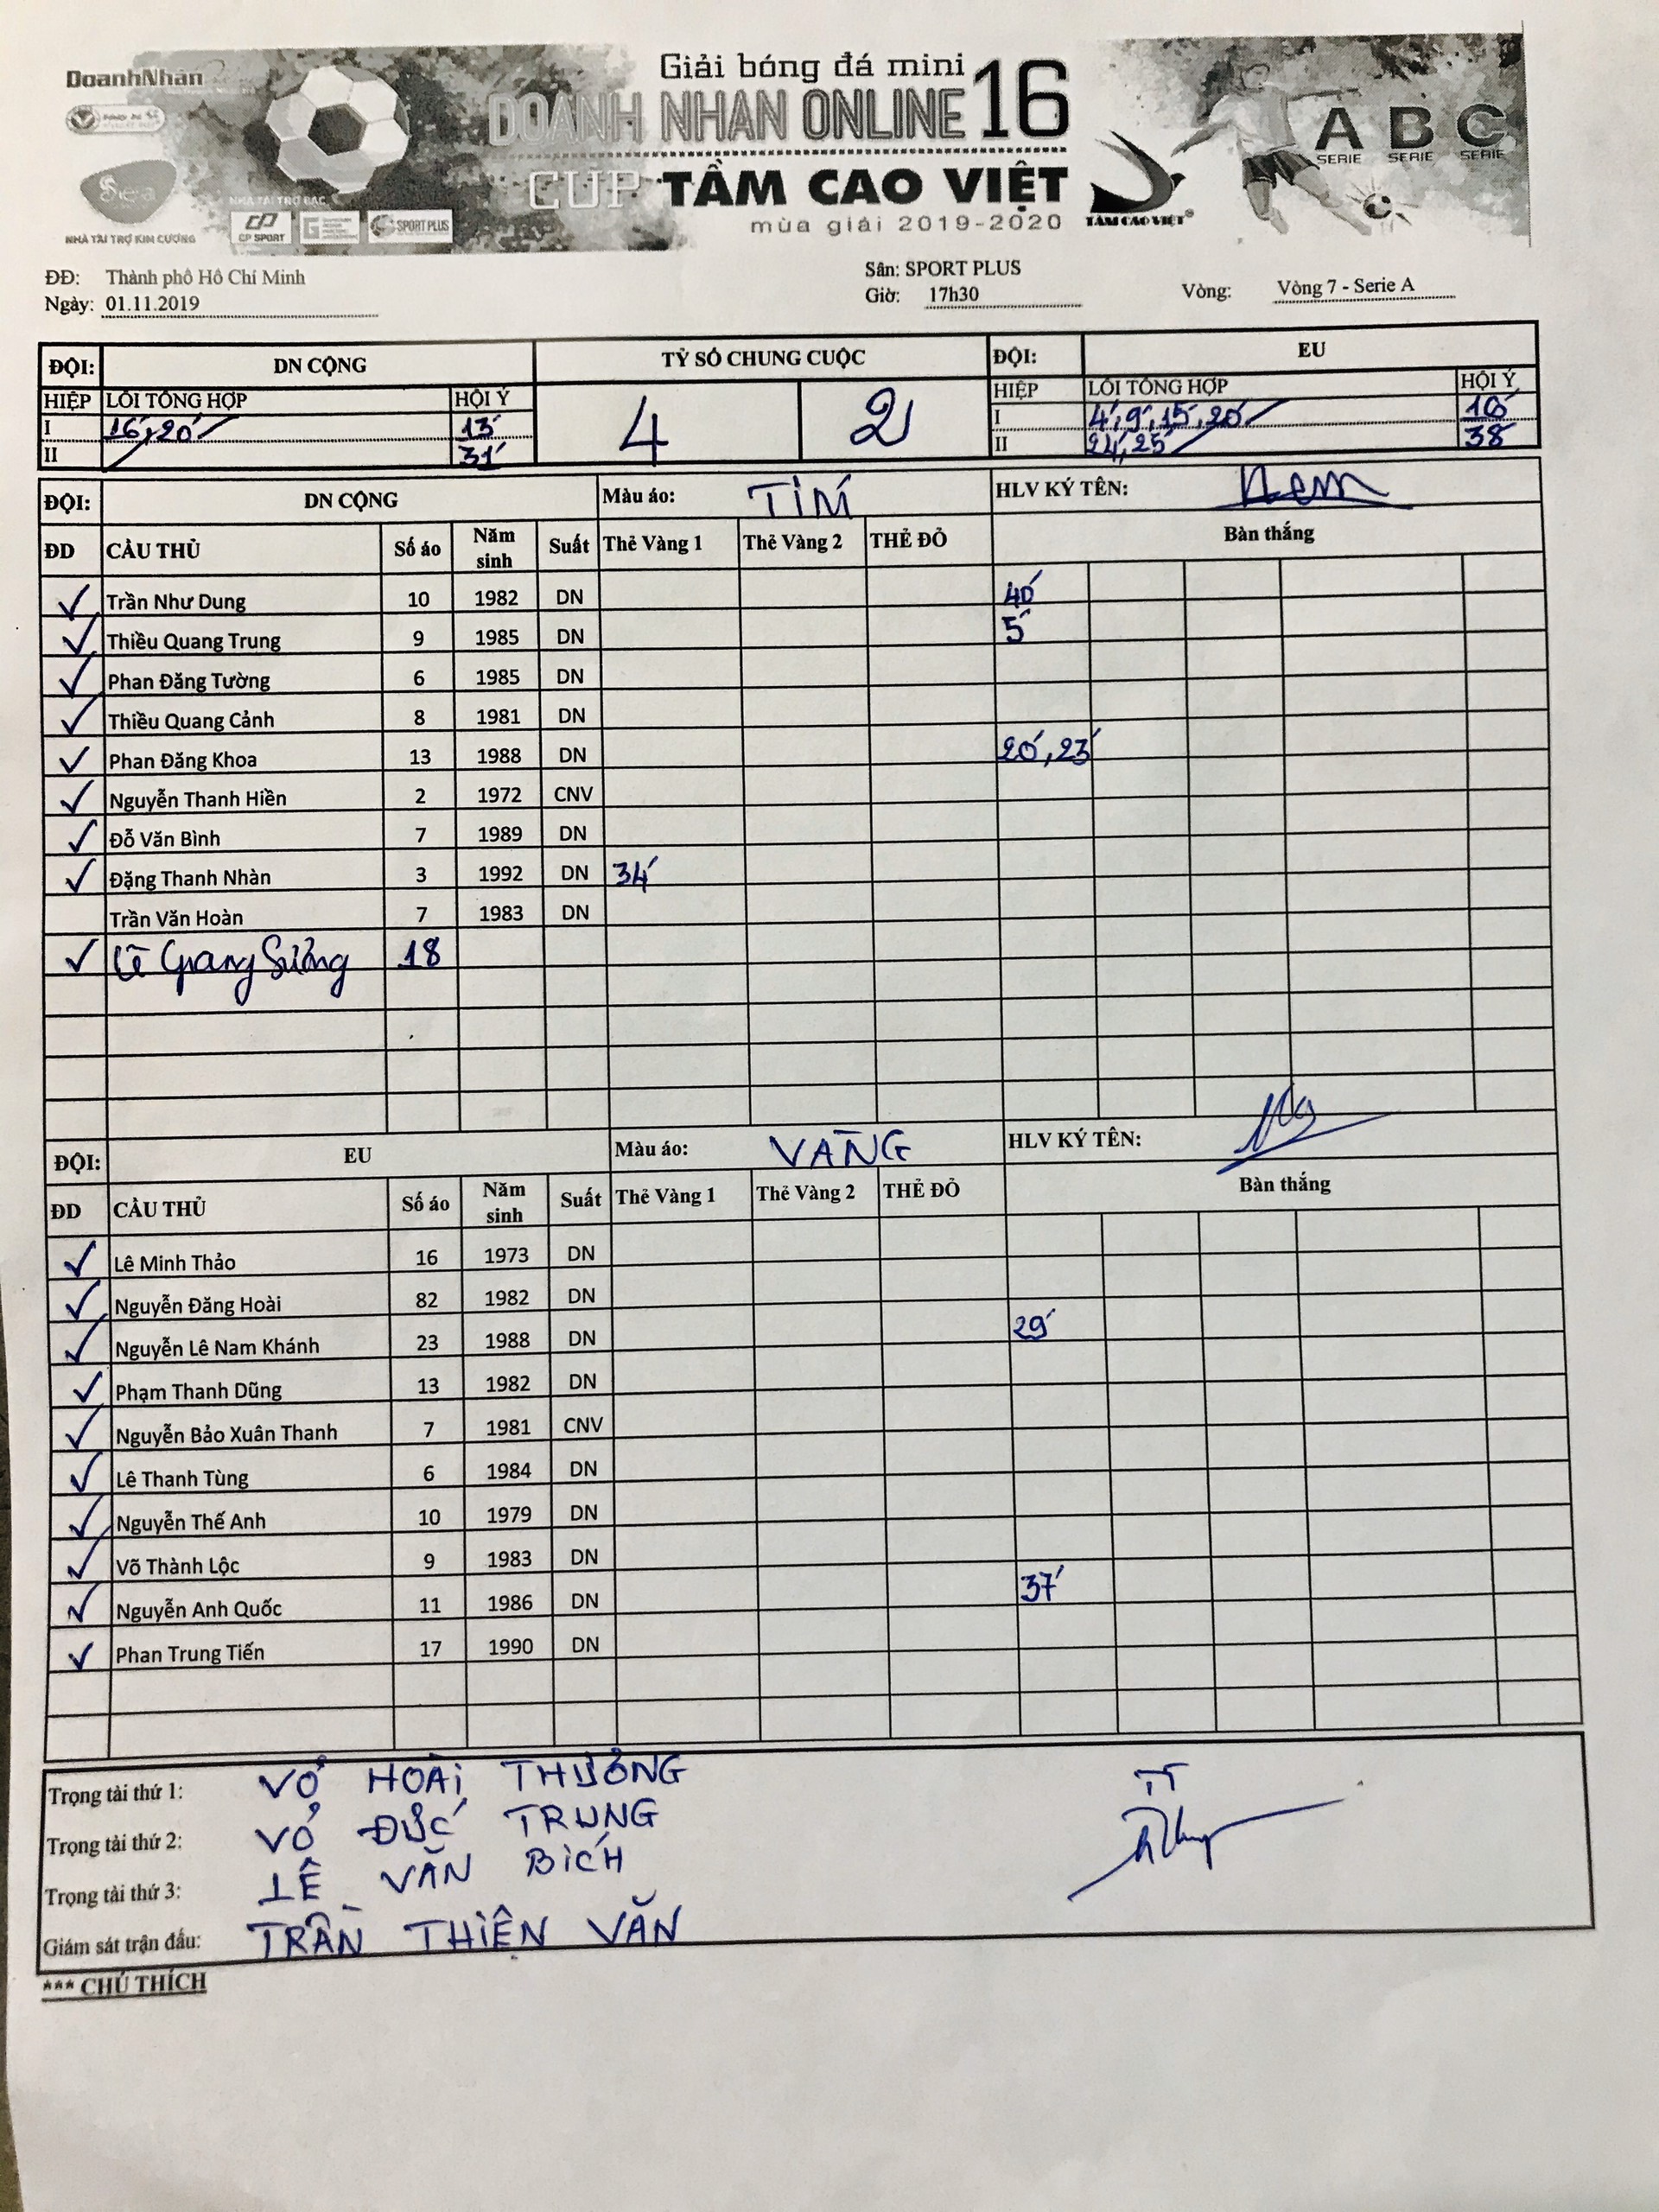 DoanhNhân
Giải bóng đá mini
DOANH NHAN ONLINE 16
CUP TẦM CAO VIỆT
mùa giải 2019-2020
TẦM CAO VIỆT®
A SERIE B SERIE C SERIE
NHÀ TÀI TRỢ BẠC
CP SPORT SPORT PLUS
NHÀ TÀI TRỢ KIM CƯƠNG
ĐĐ: Thành phố Hồ Chí Minh Sân: SPORT PLUS
Ngày: 01.11.2019 Giờ: 17h30 Vòng: Vòng 7 - Serie A
ĐỘI: DN CỘNG TỶ SỐ CHUNG CUỘC ĐỘI: EU
HIỆP LỖI TỔNG HỢP HỘI Ý 4 2 HIỆP LỖI TỔNG HỢP HỘI Ý
I 16', 20' 13' I 4', 9', 15', 20' 16'
II 31' II 24', 25' 38'
ĐỘI: DN CỘNG Màu áo: TÍM HLV KÝ TÊN:
ĐD CẦU THỦ Số áo Năm sinh Suất Thẻ Vàng 1 Thẻ Vàng 2 THẺ ĐỎ Bàn thắng
✓ Trần Như Dung 10 1982 DN 40'
✓ Thiều Quang Trung 9 1985 DN 5'
✓ Phan Đăng Tường 6 1985 DN
✓ Thiều Quang Cảnh 8 1981 DN
✓ Phan Đăng Khoa 13 1988 DN 20', 23'
✓ Nguyễn Thanh Hiền 2 1972 CNV
✓ Đỗ Văn Bình 7 1989 DN
✓ Đặng Thanh Nhàn 3 1992 DN 34'
Trần Văn Hoàn 7 1983 DN
✓ Lê 18
ĐỘI: EU Màu áo: VÀNG HLV KÝ TÊN:
ĐD CẦU THỦ Số áo Năm sinh Suất Thẻ Vàng 1 Thẻ Vàng 2 THẺ ĐỎ Bàn thắng
✓ Lê Minh Thảo 16 1973 DN
✓ Nguyễn Đăng Hoài 82 1982 DN
✓ Nguyễn Lê Nam Khánh 23 1988 DN 29'
✓ Phạm Thanh Dũng 13 1982 DN
✓ Nguyễn Bảo Xuân Thanh 7 1981 CNV
✓ Lê Thanh Tùng 6 1984 DN
✓ Nguyễn Thế Anh 10 1979 DN
✓ Võ Thành Lộc 9 1983 DN
✓ Nguyễn Anh Quốc 11 1986 DN 37'
✓ Phan Trung Tiến 17 1990 DN
Trọng tài thứ 1: VÕ HOÀI THƯỞNG
Trọng tài thứ 2: VÕ ĐỨC TRUNG
Trọng tài thứ 3: LÊ VĂN BÍCH
Giám sát trận đấu: TRẦN THIỆN VĂN
*** CHÚ THÍCH